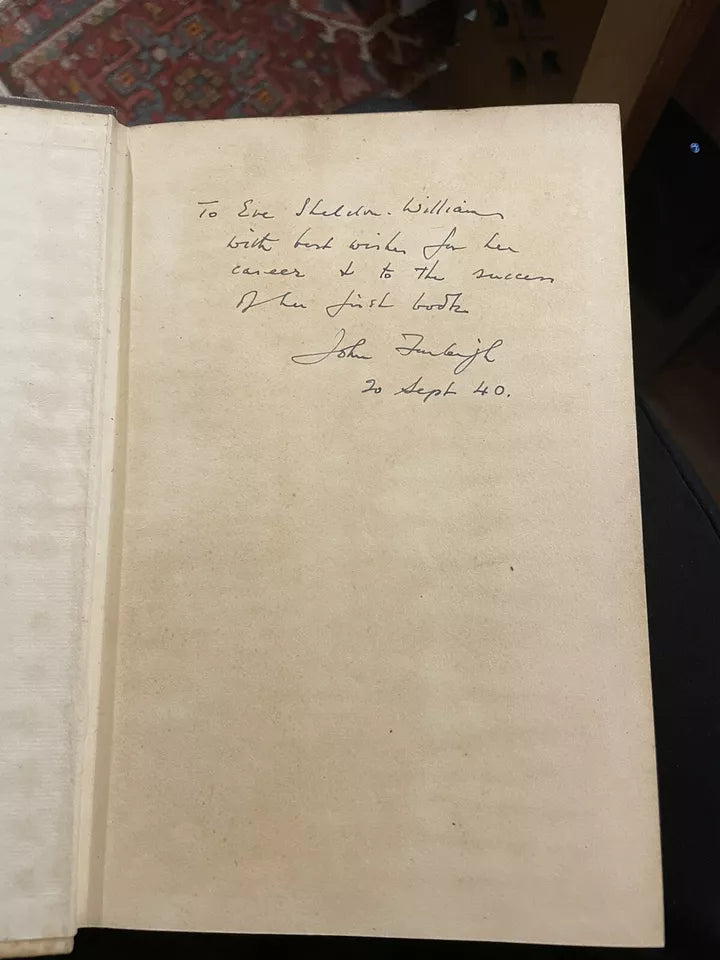 To Eve Sheldon-Williams
with best wishes for her
career & to the success
of her first book
John Farleigh
20 Sept 40.